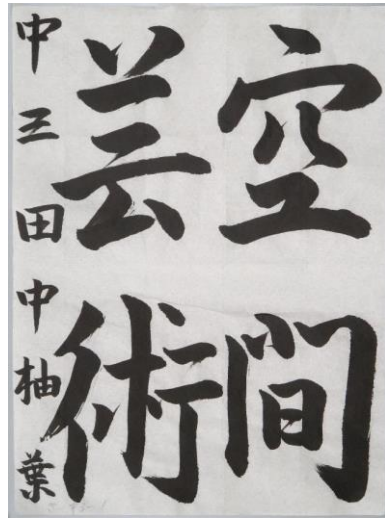 空間
芸術
中三田中柚葉